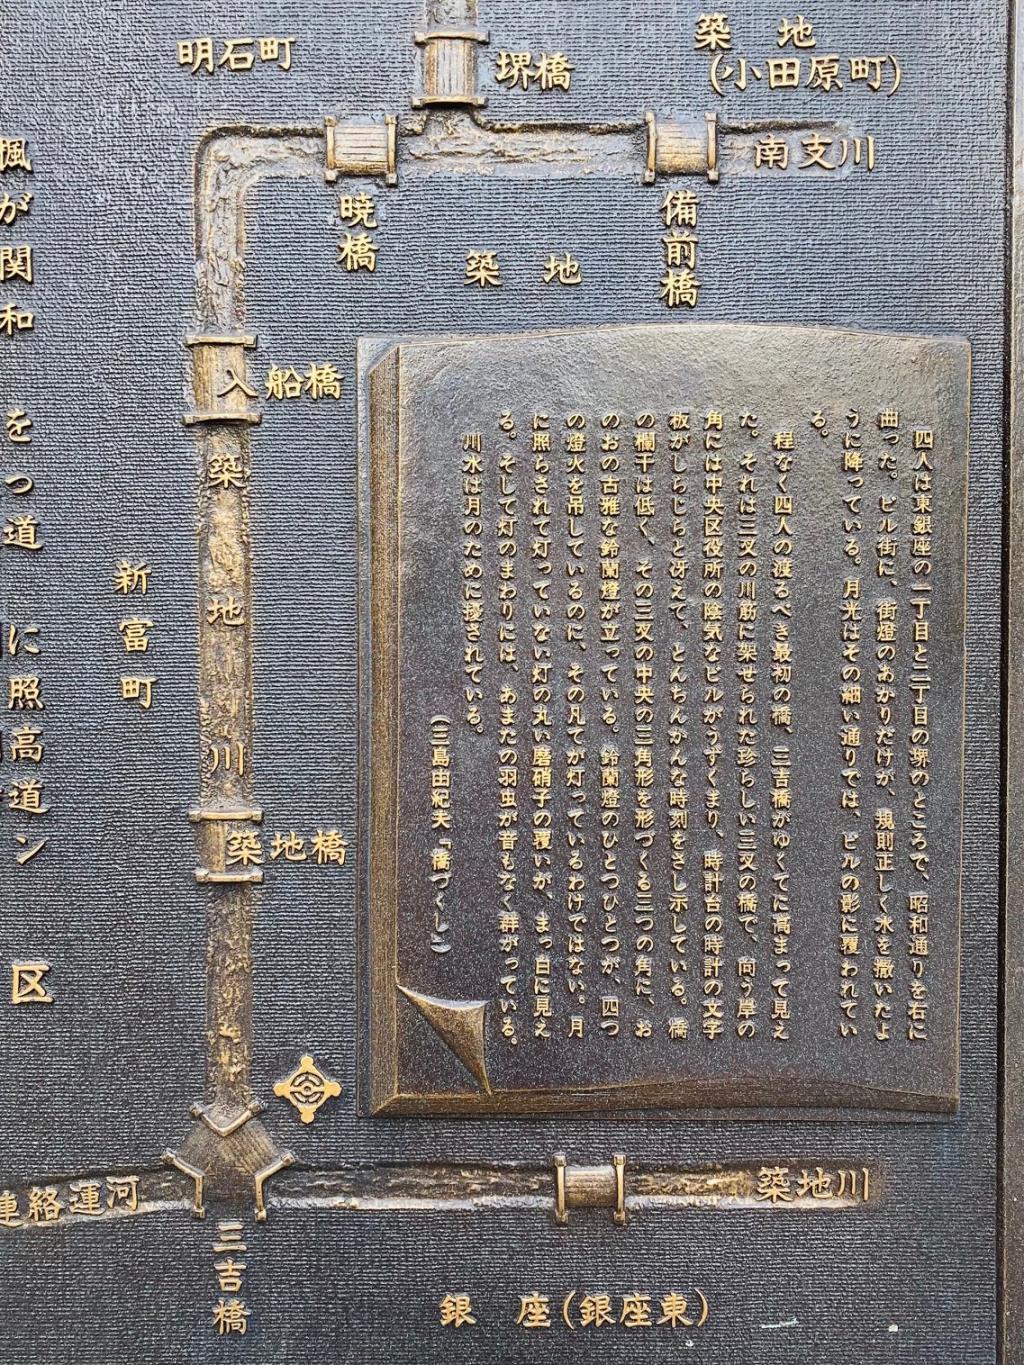 明石町
堺橋
築地
(小田原町)
南支川
暁橋
備前橋
築地
入船橋
築地川
新富町
築地橋
四人は東銀座の一丁目と二丁目の堺のところで、昭和通りを右に
曲った。ビル街に、街燈のあかりだけが、規則正しく水を撒いたよ
うに降っている。月光はその細い通りでは、ビルの影に覆われてい
る。
程なく四人の渡るべき最初の橋、三吉橋がゆくてに高まって見え
た。それは三叉の川筋に架せられた珍らしい三叉の橋で、向う岸の
角には中央区役所の陰気なビルがうずくまり、時計台の時計の文字
板がしらじらと冴えて、とんちんかんな時刻をさし示している。橋
の欄干は低く、その三叉の中央の三角形を形づくる三つの角に、お
のおの古雅な鈴蘭燈が立っている。鈴蘭燈のひとつひとつが、四つ
の燈火を吊しているのに、その凡てが灯っているわけではない。月
に照らされて灯っていない灯の丸い磨硝子の覆いが、まっ白に見え
る。そして灯のまわりには、あまたの羽虫が音もなく群がっている。
川水は月のために擾されている。
(三島由紀夫「橋づくし」)
楓が関和
をっ道
に照高道ン
区
連絡運河
築地川
三吉橋
銀座(銀座東)